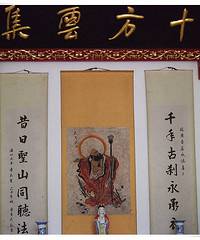 十方雲集
千年古刹永承衣
昔日聖山同聽法